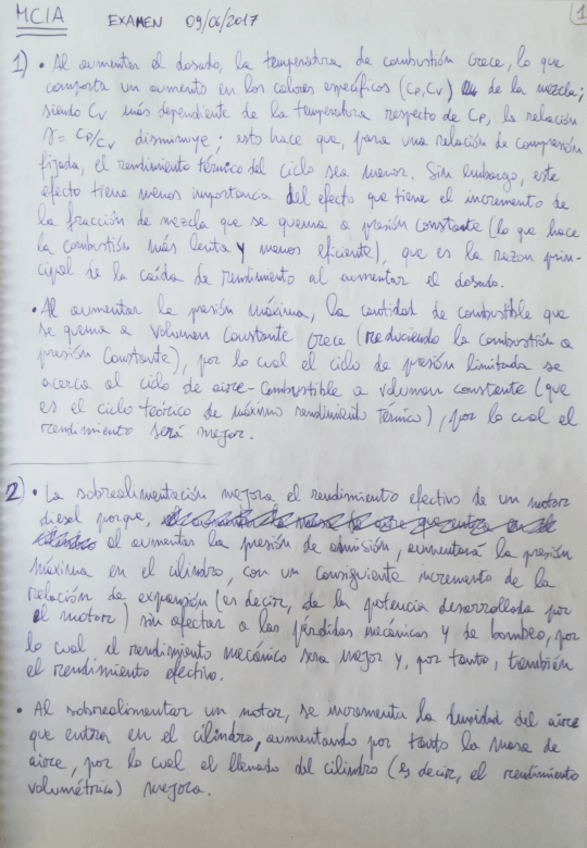 MCIA EXAMEN 09/06/2017 1
1) • Al aumentar el dosado, la temperatura de combustión crece, lo que
comporta un aumento en los calores específicos (Cp, Cv) de la mezcla;
siendo Cv más dependiente de la temperatura respecto de Cp, la relación
γ = Cp/Cv disminuye; esto hace que, para una relación de compresión
fijada, el rendimiento térmico del ciclo sea menor. Sin embargo, este
efecto tiene menos importancia del efecto que tiene el incremento de
la fracción de mezcla que se quema a presión constante (lo que hace
la combustión más lenta y menos eficiente), que es la razon prin-
cipal de la caída de rendimiento al aumentar el dosado.
• Al aumentar la presión máxima, la cantidad de combustible que
se quema a volumen constante crece (reduciendo la combustión a
presión constante), por lo cual el ciclo de presión limitada se
acerca al ciclo de aire-combustible a volumen constante (que
es el ciclo teórico de máximo rendimiento térmico), por lo cual el
rendimiento será mejor.
2) • La sobrealimentación mejora el rendimiento efectivo de un motor
diesel porque,
al aumentar la presión de admisión, aumentará la presión
máxima en el cilindro, con un consiguiente incremento de la
relación de expansión (es decir, de la potencia desarrollada por
el motor) sin afectar a las pérdidas mecánicas y de bombeo, por
lo cual el rendimiento mecánico sera mejor y, por tanto, también
el rendimiento efectivo.
• Al sobrealimentar un motor, se incrementa la densidad del aire
que entra en el cilindro, aumentando por tanto la masa de
aire, por lo cual el llenado del cilindro (es decir, el rendimiento
volumétrico) mejora.